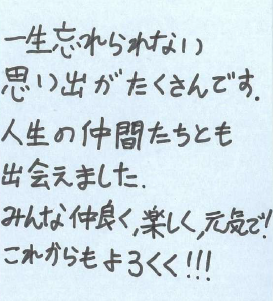 一生忘れられない
思い出がたくさんです.
人生の仲間たちとも
出会えました.
みんな仲良く,楽しく,元気で!
これからもよろくく!!!